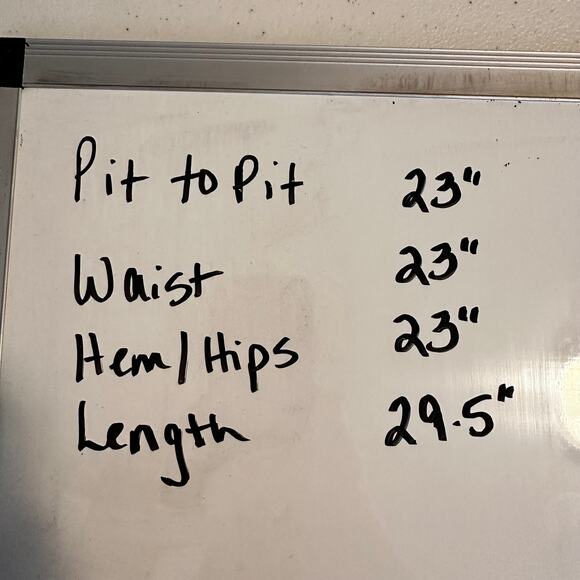 Pit to Pit 23"
Waist 23"
Hem/Hips 23"
Length 29.5"